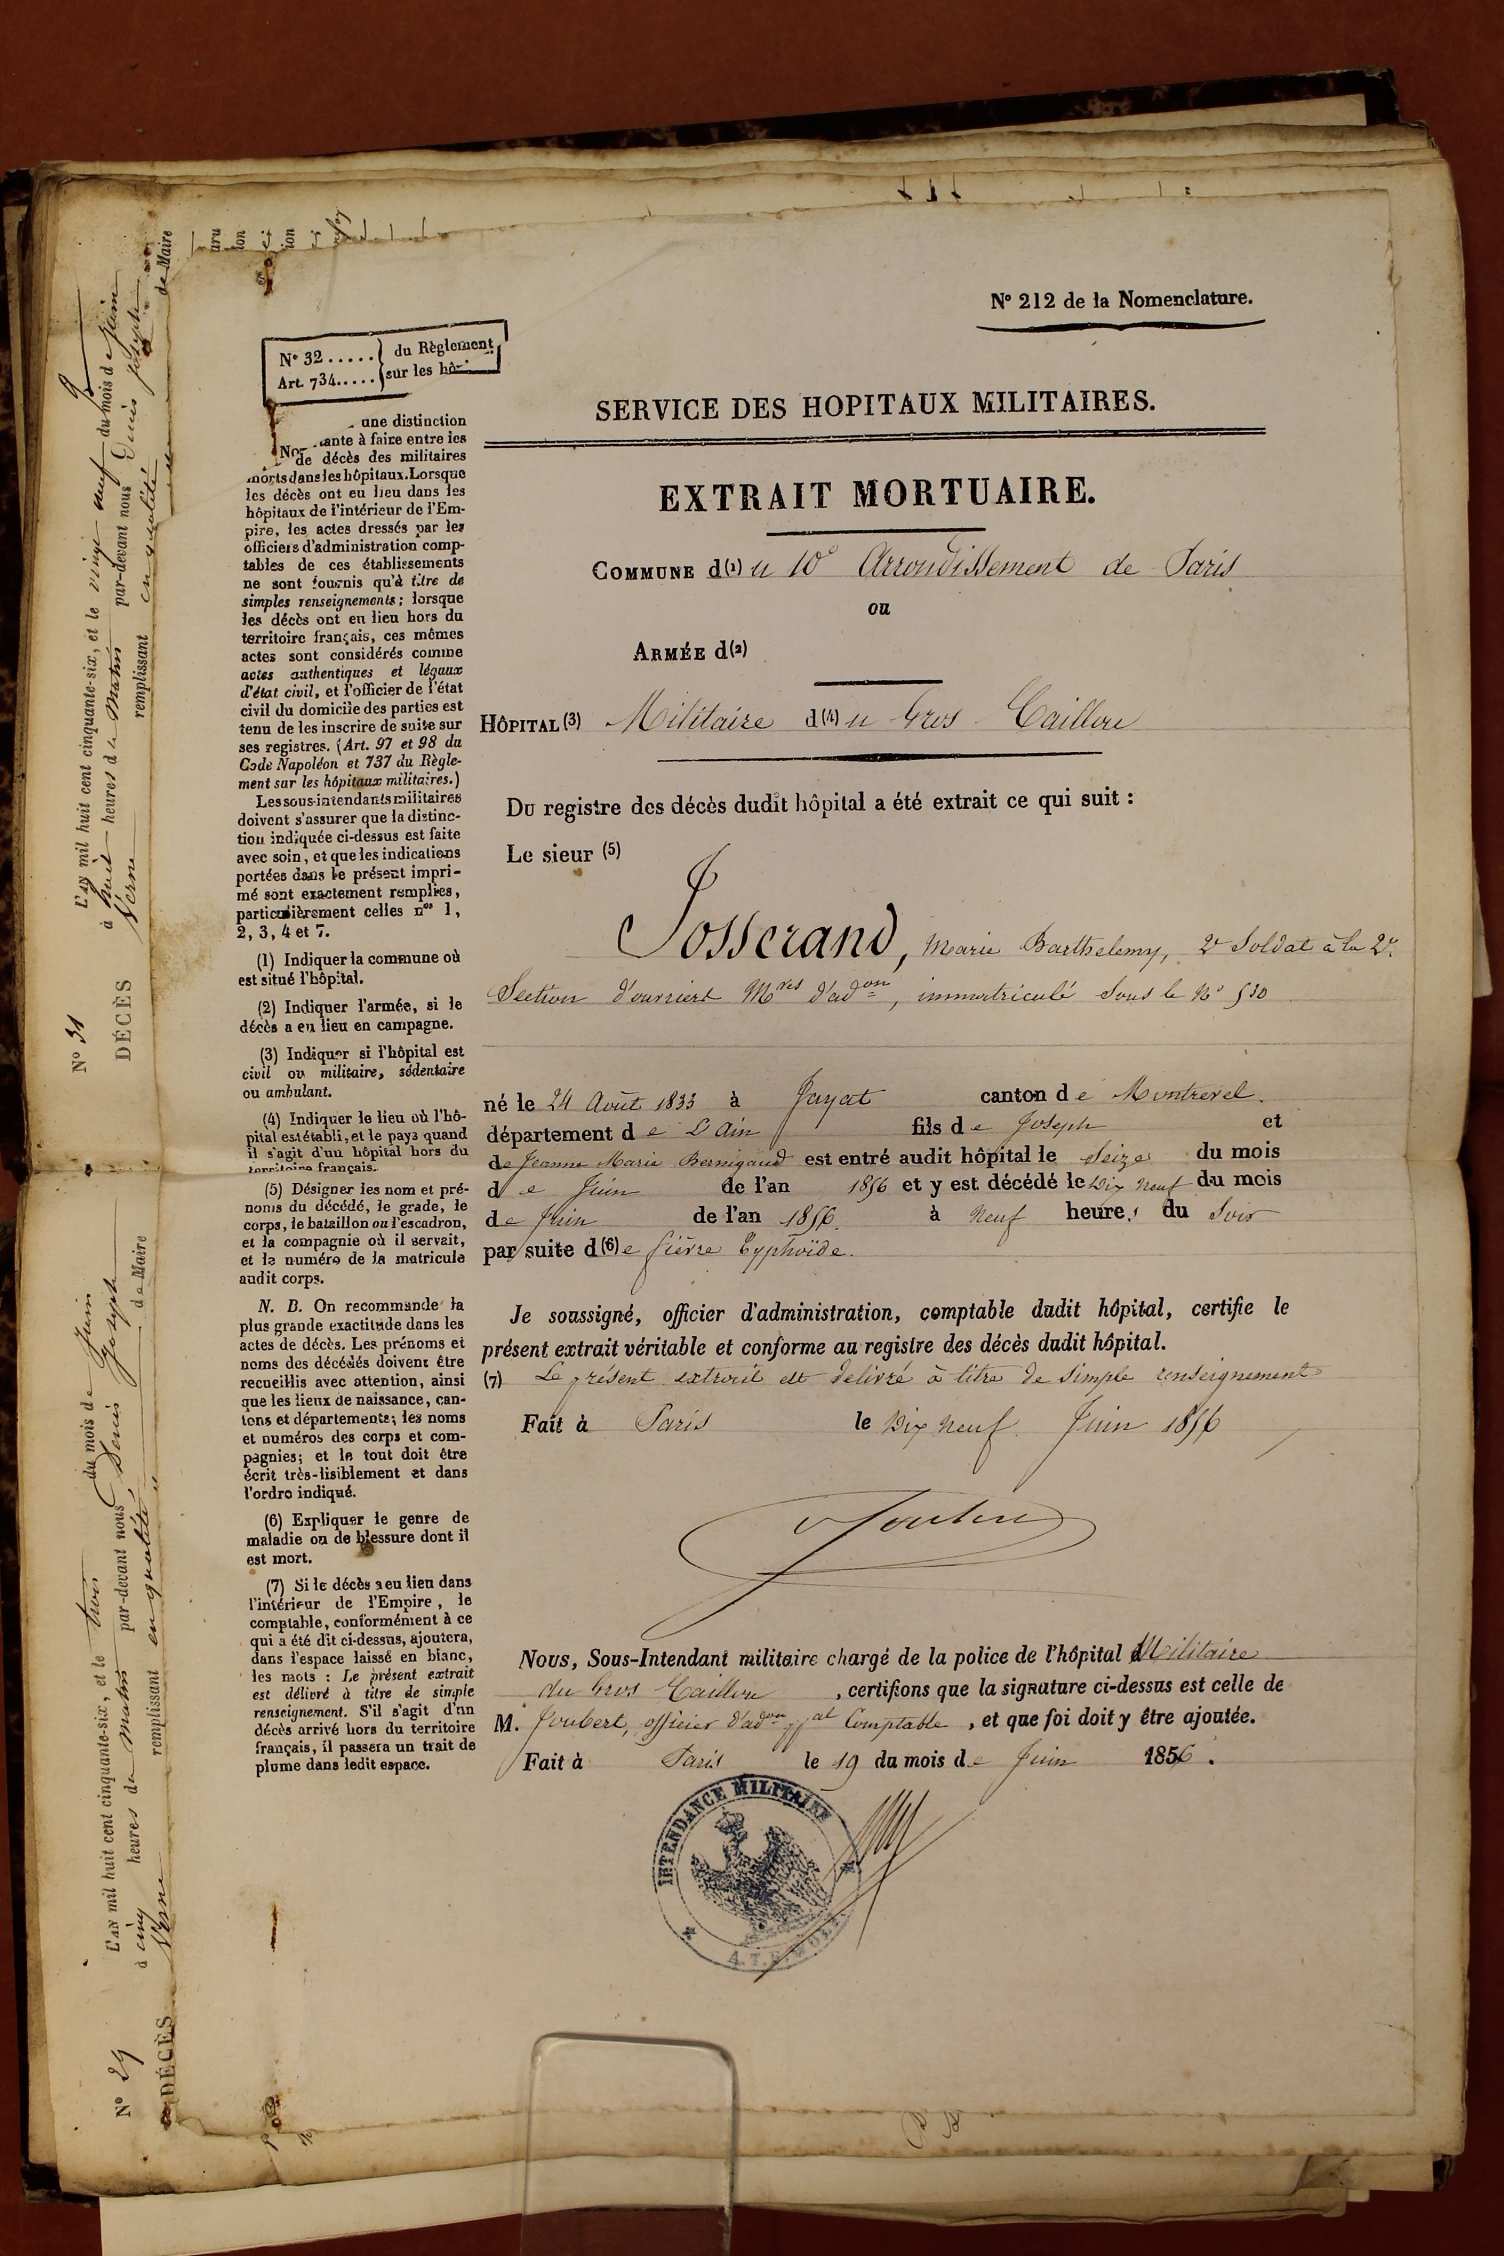 N° 212 de la Nomenclature.
N° 32 ..... du Règlement
Art. 734..... sur les hô-
SERVICE DES HOPITAUX MILITAIRES.
EXTRAIT MORTUAIRE.
COMMUNE d(1) u 10e Arrondissement de Paris
ou
ARMÉE d(2)
HÔPITAL (3) Militaire d(4) u Gros Caillou
Du registre des décès dudit hôpital a été extrait ce qui suit :
Le sieur (5)
Josserand, Marie Barthelemy, 2e Soldat à la 2e
Section d'ouvriers Mres d'adon, immatriculé sous le No 530
né le 24 Août 1833 à Jayat canton de Montrevel.
département de L'Ain fils de Joseph et
de Jeanne Marie Bernigaud est entré audit hôpital le Seize du mois
de Juin de l'an 1856 et y est décédé le Dix neuf du mois
de Juin de l'an 1856. à Neuf heures du Soir
par suite d(6)e fièvre typhoïde.
Je soussigné, officier d'administration, comptable dudit hôpital, certifie le
présent extrait véritable et conforme au registre des décès dudit hôpital.
(7) Le présent extrait est délivré à titre de simple renseignement
Fait à Paris le Dix neuf Juin 1856
Joubert
Nous, Sous-Intendant militaire chargé de la police de l'hôpital Militaire
du Gros Caillou, certifions que la signature ci-dessus est celle de
M. Joubert, officier d'adon Comptable, et que foi doit y être ajoutée.
Fait à Paris le 19 du mois de Juin 1856.
INTENDANCE MILITAIRE
une distinction
-tante à faire entre les
de décès des militaires
morts dans les hôpitaux. Lorsque
les décès ont eu lieu dans les
hôpitaux de l'intérieur de l'Em-
pire, les actes dressés par les
officiers d'administration comp-
tables de ces établissements
ne sont fournis qu'à titre de
simples renseignements ; lorsque
les décès ont eu lieu hors du
territoire français, ces mêmes
actes sont considérés comme
actes authentiques et légaux
d'état civil, et l'officier de l'état
civil du domicile des parties est
tenu de les inscrire de suite sur
ses registres. (Art. 97 et 98 du
Code Napoléon et 737 du Règle-
ment sur les hôpitaux militaires.)
Les sous-intendants militaires
doivent s'assurer que la distinc-
tion indiquée ci-dessus est faite
avec soin, et que les indications
portées dans le présent impri-
mé sont exactement remplies,
particulièrement celles nos 1,
2, 3, 4 et 7.
(1) Indiquer la commune où
est situé l'hôpital.
(2) Indiquer l'armée, si le
décès a eu lieu en campagne.
(3) Indiquer si l'hôpital est
civil ou militaire, sédentaire
ou ambulant.
(4) Indiquer le lieu où l'hô-
pital est établi, et le pays quand
il s'agit d'un hôpital hors du
territoire français.
(5) Désigner les nom et pré-
noms du décédé, le grade, le
corps, le bataillon ou l'escadron,
et la compagnie où il servait,
et le numéro de la matricule
audit corps.
N. B. On recommande la
plus grande exactitude dans les
actes de décès. Les prénoms et
noms des décédés doivent être
recueillis avec attention, ainsi
que les lieux de naissance, can-
tons et départements ; les noms
et numéros des corps et com-
pagnies ; et le tout doit être
écrit très-lisiblement et dans
l'ordre indiqué.
(6) Expliquer le genre de
maladie ou de blessure dont il
est mort.
(7) Si le décès a eu lieu dans
l'intérieur de l'Empire, le
comptable, conformément à ce
qui a été dit ci-dessus, ajoutera,
dans l'espace laissé en blanc,
les mots : Le présent extrait
est délivré à titre de simple
renseignement. S'il s'agit d'un
décès arrivé hors du territoire
français, il passera un trait de
plume dans ledit espace.
N° 31
DÉCÈS
L'AN mil huit cent cinquante-six, et le vingt neuf du mois de Juin
à huit heures du matin par-devant nous Denis Joseph
Verne remplissant en qualité de Maire
N° 29
DÉCÈS
L'AN mil huit cent cinquante-six, et le trois du mois de Juin
à cinq heures du matin par-devant nous Denis Joseph
Verne remplissant en qualité de Maire